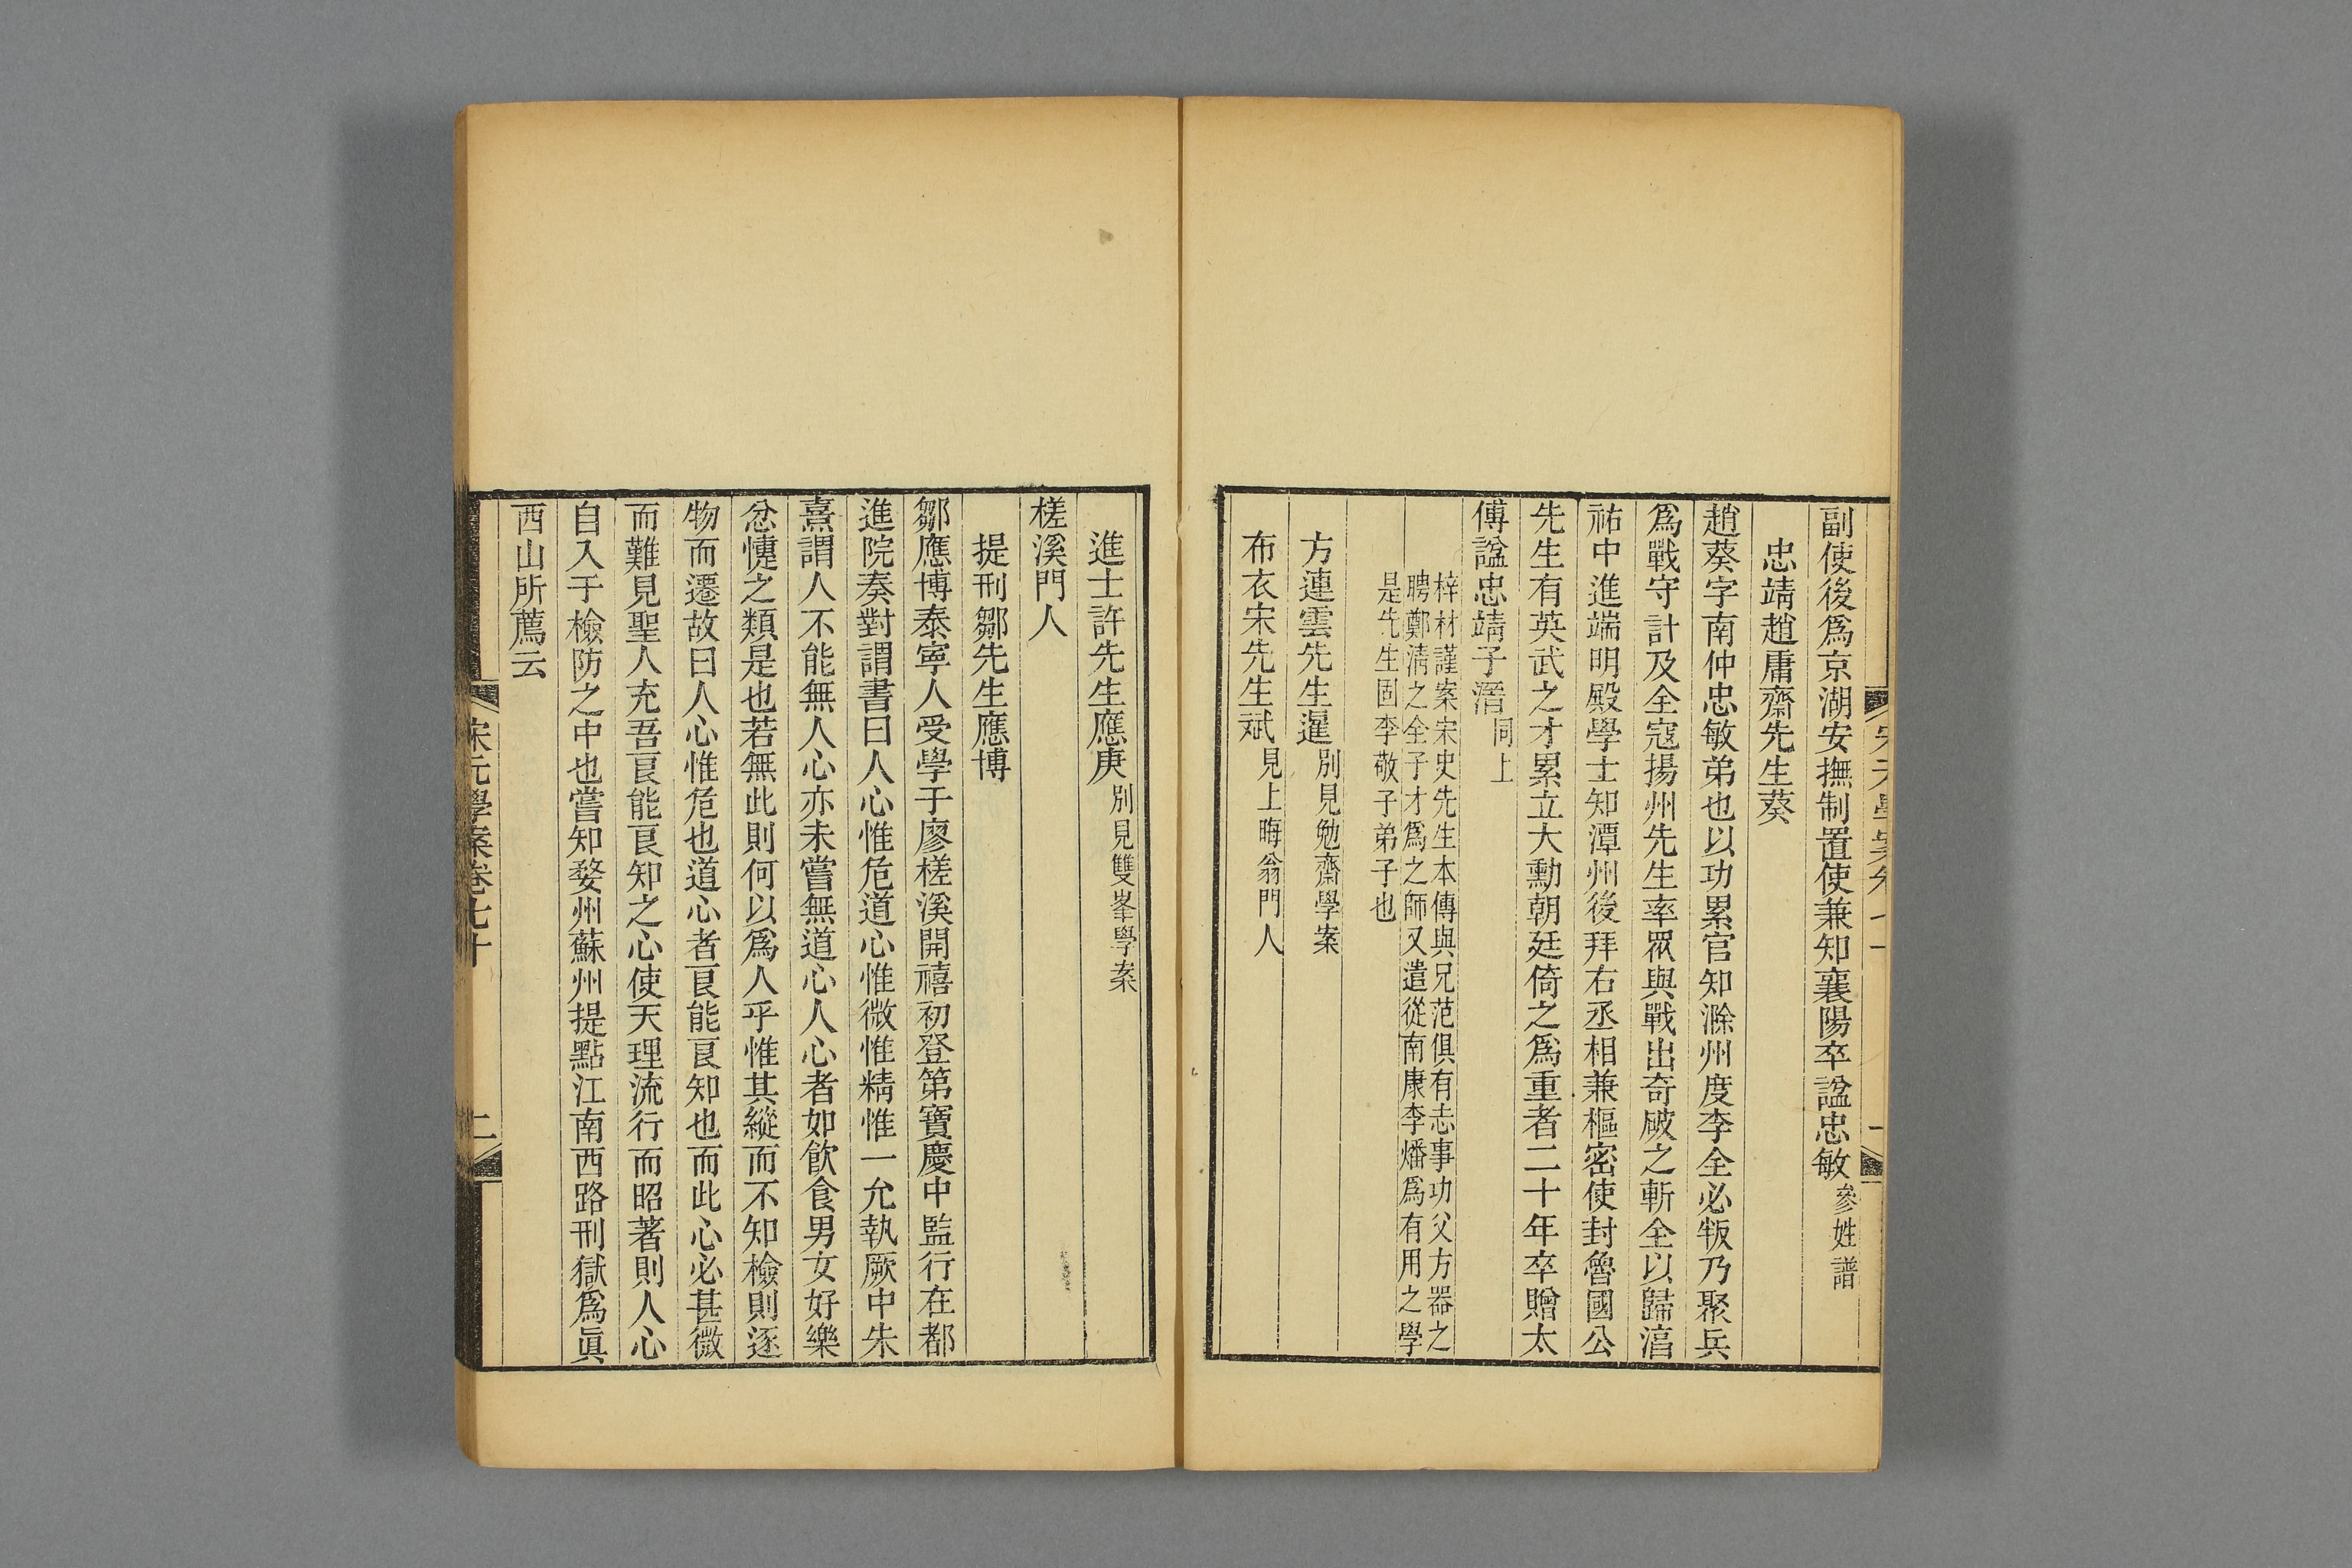 副使後爲京湖安撫制置使兼知襄陽卒諡忠敏參姓譜
忠靖趙庸齋先生葵
趙葵字南仲忠敏弟也以功累官知滁州度李全必叛乃聚兵
爲戰守計及全寇揚州先生率眾與戰出奇破之斬全以歸湻
祐中進端明殿學士知潭州後拜右丞相兼樞密使封魯國公
先生有英武之才累立大勳朝廷倚之爲重者二十年卒贈太
傅諡忠靖子溍同上
梓材謹案宋史先生本傳與兄范俱有志事功父方器之
聘鄭淸之全子才爲之師又遣從南康李燔爲有用之學
是先生固李敬子弟子也
方連雲先生暹別見勉齋學案
布衣宋先生斌見上晦翁門人
進士許先生應庚別見雙峯學案
槎溪門人
提刑鄒先生應博
鄒應博泰寧人受學于廖槎溪開禧初登第寶慶中監行在都
進院奏對謂書曰人心惟危道心惟微惟精惟一允執厥中朱
熹謂人不能無人心亦未嘗無道心人心者如飮食男女好樂
忿懥之類是也若無此則何以爲人乎惟其縱而不知檢則逐
物而遷故曰人心惟危也道心者良能良知也而此心必甚微
而難見聖人充吾良能良知之心使天理流行而昭著則人心
自入于檢防之中也嘗知婺州蘇州提點江南西路刑獄爲眞
西山所薦云
宋元學案卷七十
二